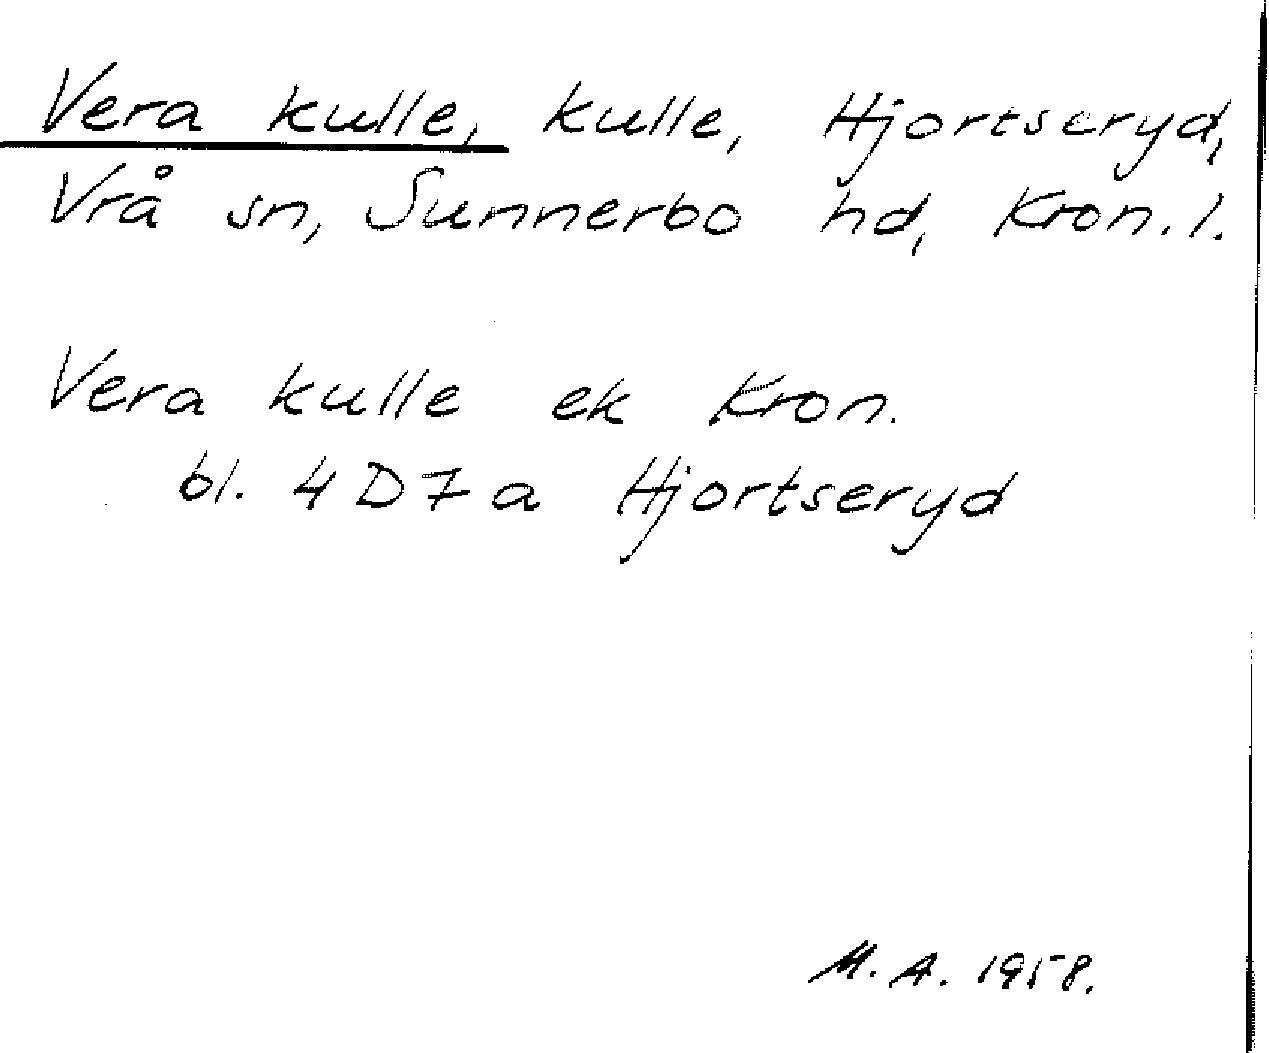 Vera kulle, kulle, Hjortseryd,
Vrå sn, Sunnerbo hd, Kron. l.
Vera kulle ek Kron.
bl. 4 D 7 a Hjortseryd
M. A. 1958.